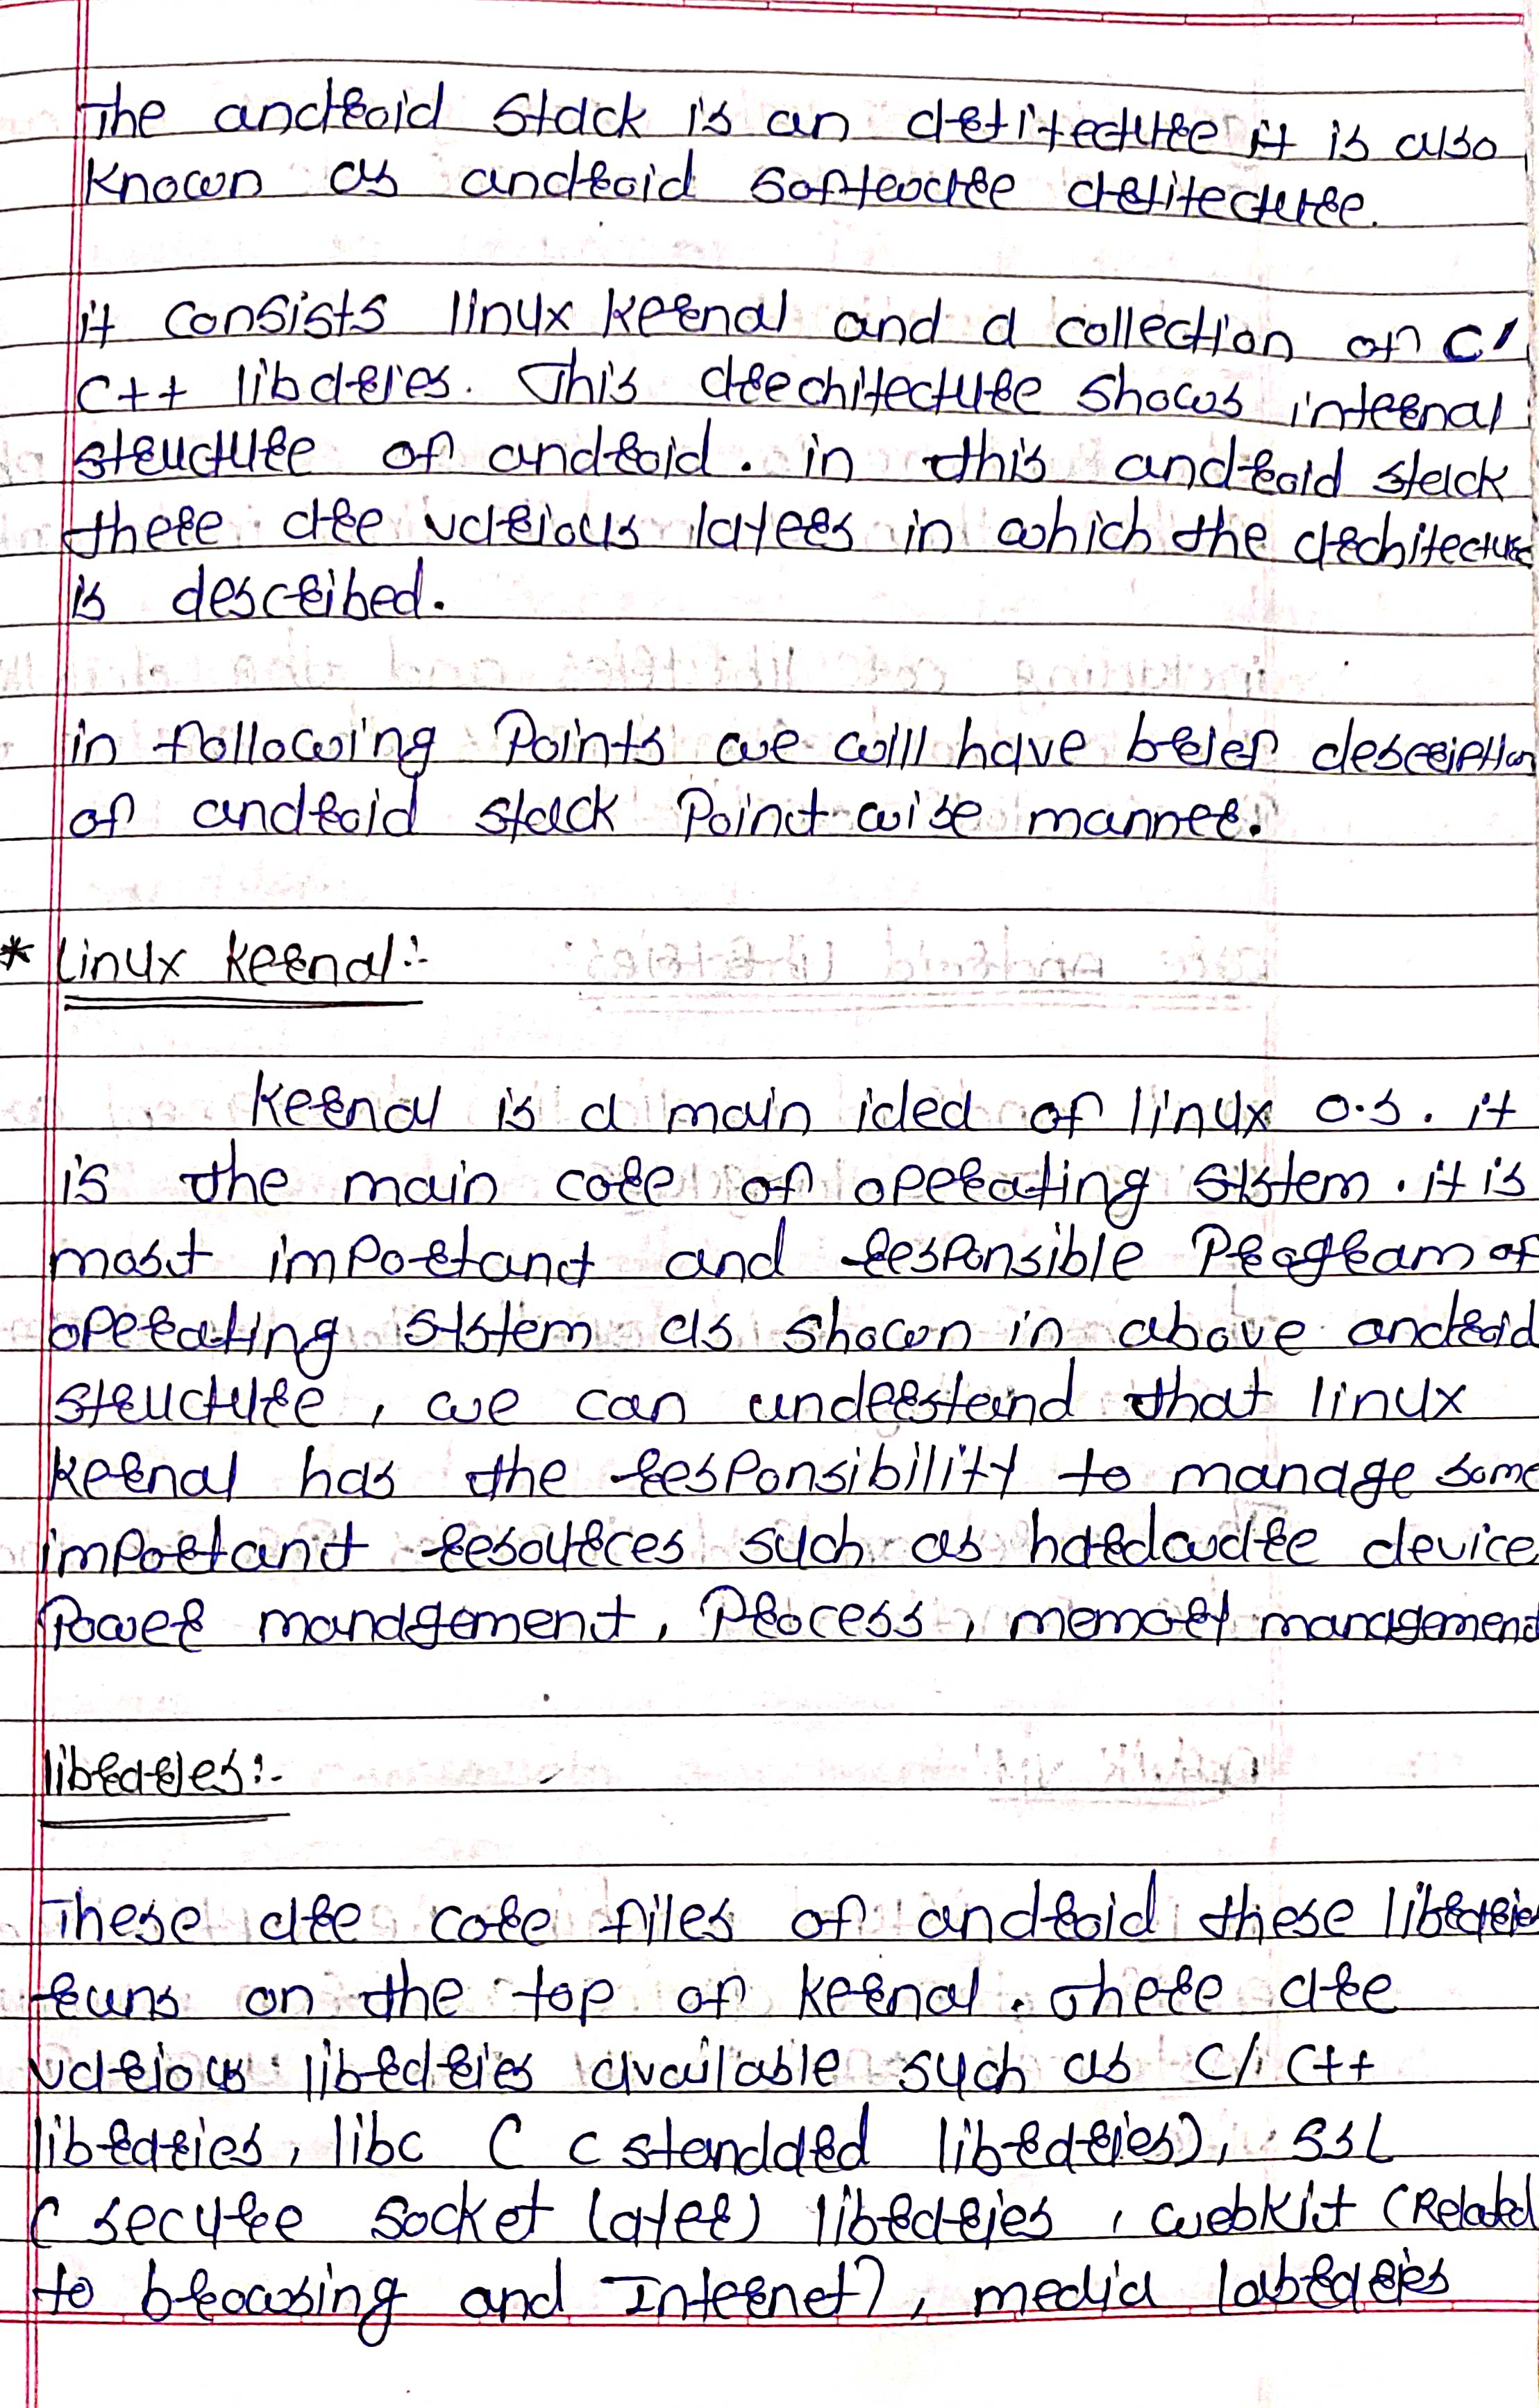 The android stack is an artitecture it is also
known as android software artitecture.
it consists linux kernal and a collection of C/
C++ libaries. This arechitecture shows internal
structure of android. in this android stack
there are various layers in which the architecture
is described.
in following Points we will have brief description
of android stack Point wise manner.
* linux kernal:-
Kernal is a main idea of linux O.S. it
is the main core of operating system. it is
most important and responsible Program of
operating system as shown in above android
structure, we can understand that linux
kernal has the responsibility to manage some
important resources such as hardware device
Power management, Process, memory management
libraries:-
These are core files of android these libraries
runs on the top of kernal. There are
various libraries available such as C/C++
libraries, libc ( C standard libraries), SSL
( secure socket layer) libraries, webkit (Related
to browsing and Internet), media labraries